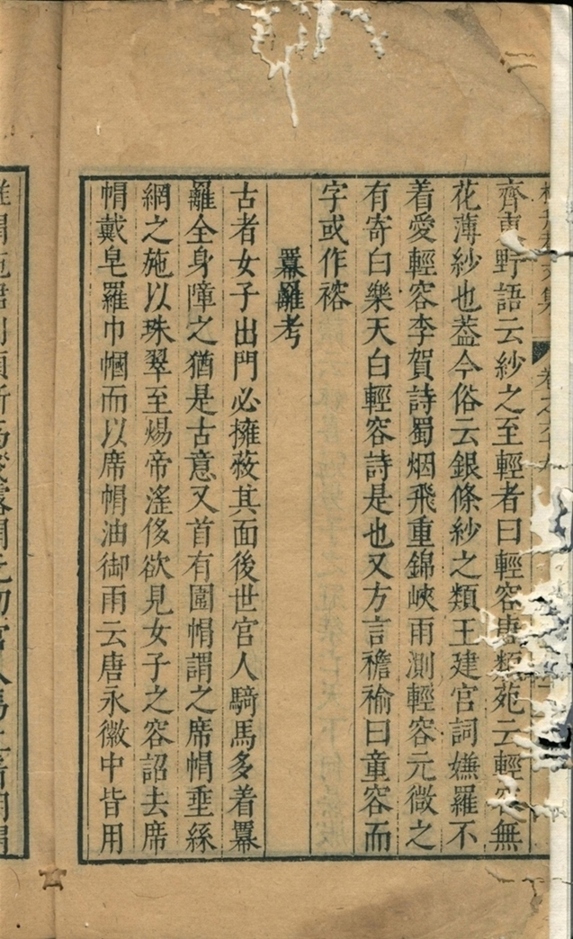 齊東野語云紗之至輕者曰輕容唐類苑云輕容無
花薄紗也葢今俗云銀條紗之類王建宮詞嫌羅不
着愛輕容李賀詩蜀烟飛重錦峽雨濺輕容元微之
有寄白樂天白輕容詩是也又方言襜褕曰童容而
字或作褣
羃䍦考
古者女子出門必擁蔽其面後世宮人騎馬多着羃
䍦全身障之猶是古意又首有圍帽謂之席帽垂絲
網之施以珠翠至煬帝滛侈欲見女子之容詔去席
帽戴皂羅巾幗而以席帽油御雨云唐永徽中皆用